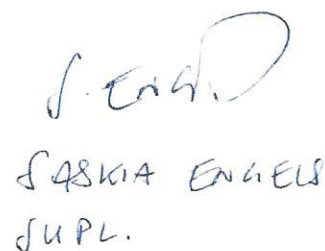 S. Engels
SASKIA ENGELS
SUPL.